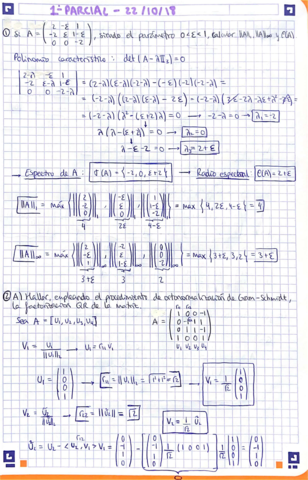 1er PARCIAL - 22/10/18
① Si A = (2 -ε 1; -2 ε 1-ε; 0 0 -2), siendo el parámetro 0<ε<1, calcular ||A||₁, ||A||∞ y ρ(A).
Polinomio característico: det (A-λII₃) = 0
|2-λ -ε 1; -2 ε-λ 1-ε; 0 0 -2-λ| = (2-λ)(ε-λ)(-2-λ) - (-ε)(-2)(-2-λ) =
= (-2-λ)[(2-λ)(ε-λ) - 2ε] = (-2-λ)(2ε-2λ-λε+λ²-2ε) =
= (-2-λ)(λ²-(ε+2)λ) = 0 → -2-λ=0 → λ₁=-2
λ(λ-(ε+2)) = 0 → λ₂=0
λ-ε-2 = 0 → λ₃=2+ε
→ Espectro de A: σ(A) = {-2, 0, ε+2} → Radio espectral ρ(A) = 2+ε
||A||₁ = máx {||(2; -2; 0)||₁, ||(-ε; ε; 0)||₁, ||(1; 1-ε; -2)||₁} = max {4, 2ε, 4-ε} = 4
4 2ε 4-ε
||A||∞ = máx {||(2; -ε; 1)||₁, ||(-2; ε; 1-ε)||₁, ||(0; 0; -2)||₁} = max {3+ε, 3, 2} = 3+ε
3+ε 3 2
② A) Hallar, empleando el procedimiento de ortonormalización de Gram-Schmidt,
la factorización QR de la matriz.
Sea A = [U₁, U₂, U₃, U₄]
U₁ U₂ U₃ U₄
V₁ = U₁/||U₁|| → U₁ = r₁₁ V₁
U₁ = (1; 0; 0; 1) → r₁₁ = ||U₁|| = √1²+1² = √2 → V₁ = 1/√2 (1; 0; 0; 1)